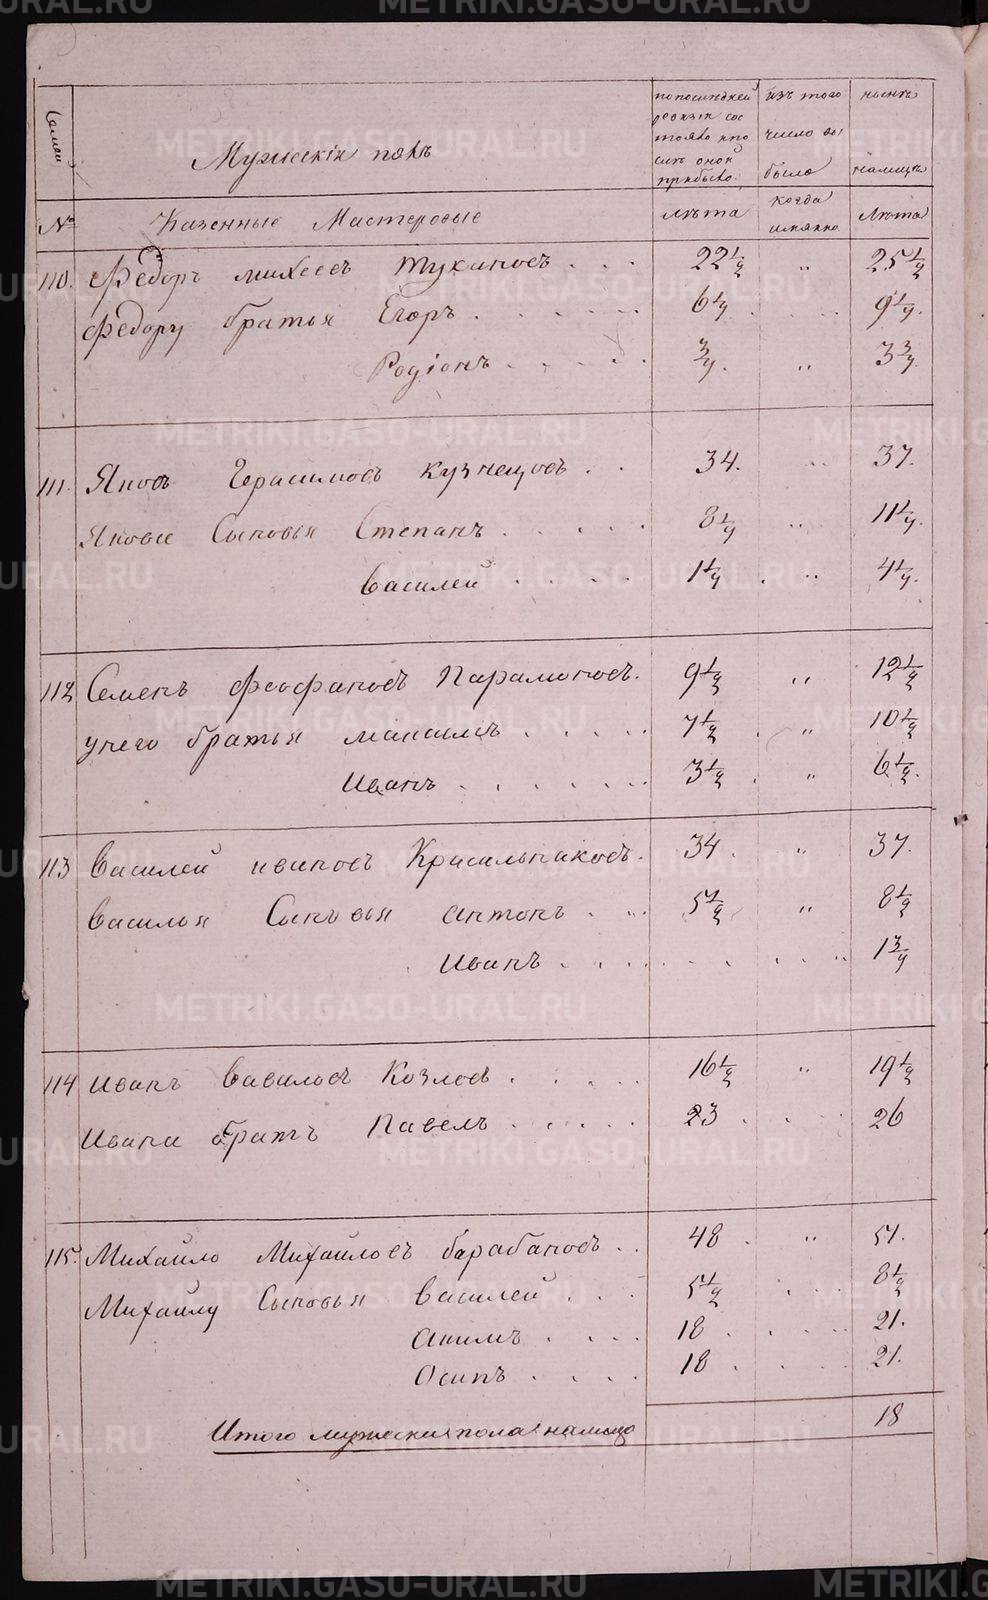 Семей
Мужескiй полъ
по последней ревизiи состояло и после оной прибыло.
изъ того числа выбыло
ныне налицо
№
Казенные Мастеровые
лѣта
когда имянно
Лѣта
110. Федоръ михеевъ Тукановъ . . . 22 1/2 " 25 1/2
Федору братья Егоръ . . . . . . 6 1/4 . . . . 9 1/4.
Родiонъ . . . . 3/4. " 3 3/4.
111. Яковъ Герасимовъ Кузнецовъ . . 34. " 37.
Якове Сыновья Степанъ . . . . . 8 1/4 " 11 1/4.
Василей . . . . 1 1/4 . " 4 1/4.
112 Семенъ Феофановъ Парамоновъ. 9 1/2 " 12 1/2
унего братья Максимъ . . . . . 7 1/2 . " 10 1/2
Иванъ . . . . . . 3 1/2 . " 6 1/2.
113 Василей ивановъ Красильниковъ. 34 . " 37.
Василья Сыновья антонъ . . . 5 1/2 " 8 1/2
Иванъ . . . . . . . . . . 1 3/4
114 иванъ Василовъ Козловъ . . . . . 16 1/2 " 19 1/2
Ивана братъ Павелъ . . . . . . 23 . . . 26
115. Михаило Михаиловъ барабановъ . . 48 . " 51.
Михаилу Сыновья Василей . . . 5 1/2 . . . 8 1/2
Акимъ . . . . 18 . . . . 21.
Осипъ . . . . 18 . . . . 21.
Итого мужеска пола налицо 18
METRIKI.GASO-URAL.RU